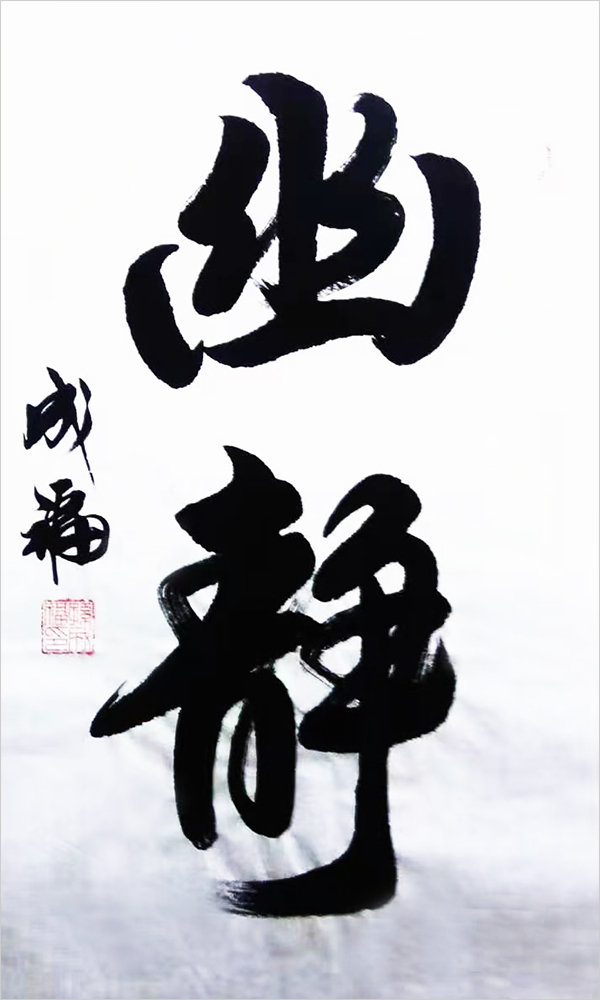 幽静
成福